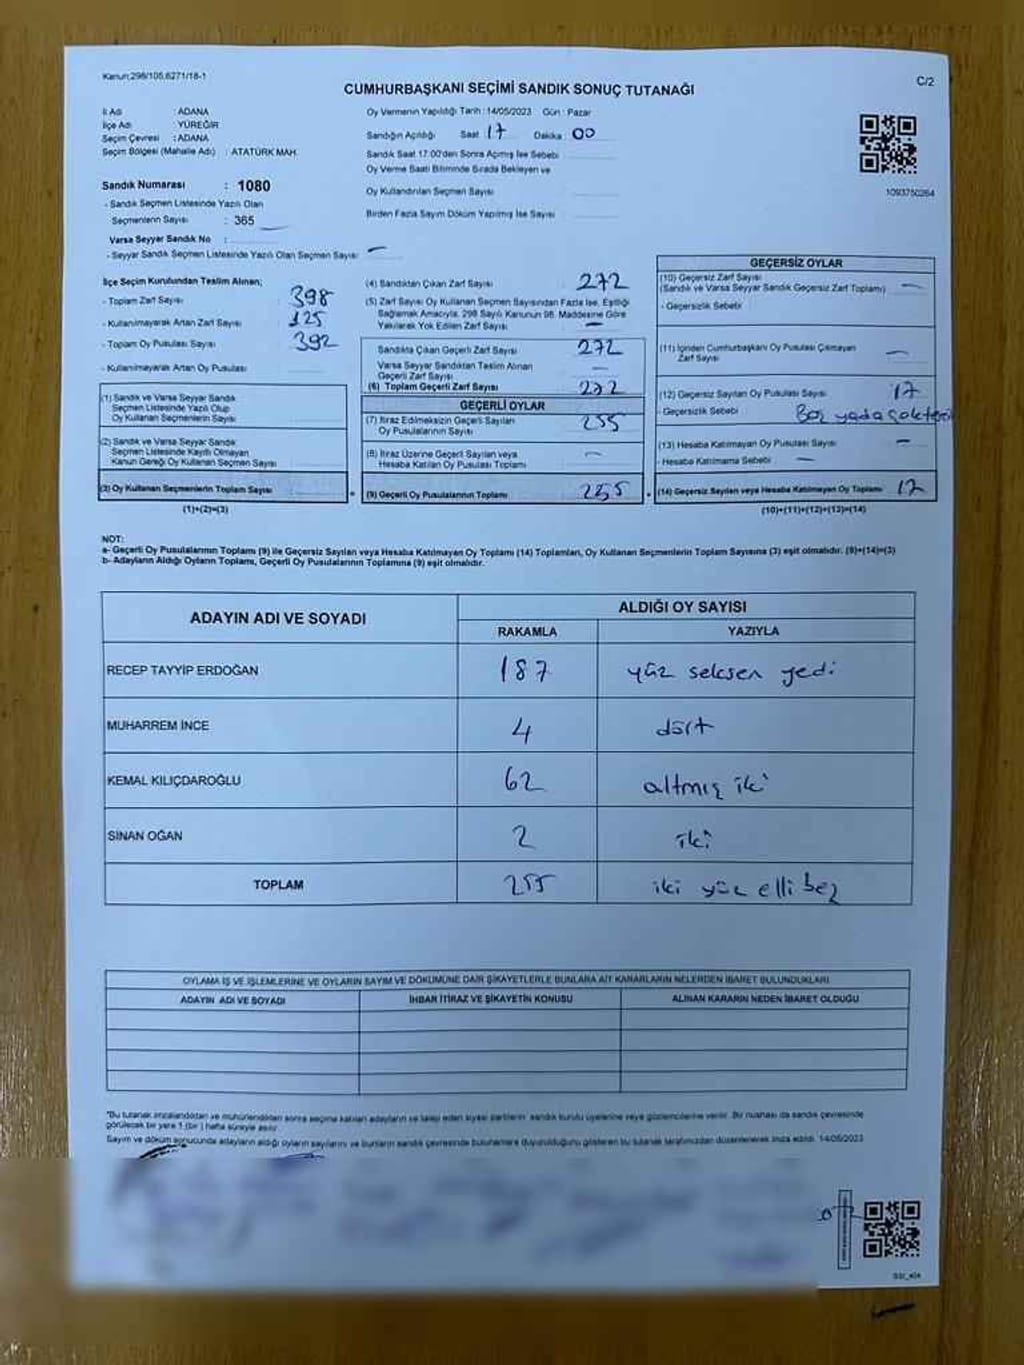 Kanun;298/105,6271/18-1
C/2
CUMHURBAŞKANI SEÇİMİ SANDIK SONUÇ TUTANAĞI
İl Adı : ADANA
İlçe Adı : YÜREĞİR
Seçim Çevresi : ADANA
Seçim Bölgesi (Mahalle Adı) : ATATÜRK MAH.
Sandık Numarası : 1080
- Sandık Seçmen Listesinde Yazılı Olan
Seçmenlerin Sayısı : 365
Varsa Seyyar Sandık No :
- Seyyar Sandık Seçmen Listesinde Yazılı Olan Seçmen Sayısı: —
Oy Vermenin Yapıldığı Tarih : 14/05/2023 Gün : Pazar
Sandığın Açılışı Saat : 17 Dakika : 00
Sandık Saat 17:00'den Sonra Açılmış İse Sebebi
Oy Verme Saati Bitiminde Sırada Bekleyen ve
Oy Kullandırılan Seçmen Sayısı
Birden Fazla Sayım Döküm Yapılmış İse Sayısı
1093750264
İlçe Seçim Kurulundan Teslim Alınan;
- Toplam Zarf Sayısı 398
- Kullanılmayarak Artan Zarf Sayısı 125
- Toplam Oy Pusulası Sayısı 392
- Kullanılmayarak Artan Oy Pusulası
(1) Sandık ve Varsa Seyyar Sandık
Seçmen Listesinde Yazılı Olup
Oy Kullanan Seçmenlerin Sayısı
(2) Sandık ve Varsa Seyyar Sandık
Seçmen Listesinde Kayıtlı Olmayan
Kanun Gereği Oy Kullanan Seçmen Sayısı
(3) Oy Kullanan Seçmenlerin Toplam Sayısı
(1)+(2)=(3)
(4) Sandıktan Çıkan Zarf Sayısı 272
(5) Zarf Sayısı Oy Kullanan Seçmen Sayısından Fazla İse, Eşitliği
Sağlamak Amacıyla, 298 Sayılı Kanunun 98. Maddesine Göre
Yakılarak Yok Edilen Zarf Sayısı —
Sandıkta Çıkan Geçerli Zarf Sayısı 272
Varsa Seyyar Sandıktan Teslim Alınan
Geçerli Zarf Sayısı —
(6) Toplam Geçerli Zarf Sayısı 272
GEÇERLİ OYLAR
(7) İtiraz Edilmeksizin Geçerli Sayılan
Oy Pusulalarının Sayısı 255
(8) İtiraz Üzerine Geçerli Sayılan veya
Hesaba Katılan Oy Pusulası Toplamı —
(9) Geçerli Oy Pusulalarının Toplamı 255
GEÇERSİZ OYLAR
(10) Geçersiz Zarf Sayısı
(Sandık ve Varsa Seyyar Sandık Geçersiz Zarf Toplamı) —
- Geçersizlik Sebebi
(11) İçinden Cumhurbaşkanı Oy Pusulası Çıkmayan
Zarf Sayısı —
(12) Geçersiz Sayılan Oy Pusulası Sayısı 17
- Geçersizlik Sebebi
(13) Hesaba Katılmayan Oy Pusulası Sayısı —
- Hesaba Katılmama Sebebi —
(14) Geçersiz Sayılan veya Hesaba Katılmayan Oy Toplamı 17
(10)+(11)+(12)+(13)=(14)
NOT:
a- Geçerli Oy Pusulalarının Toplamı (9) ile Geçersiz Sayılan veya Hesaba Katılmayan Oy Toplamı (14) Toplamları, Oy Kullanan Seçmenlerin Toplam Sayısına (3) eşit olmalıdır. (9)+(14)=(3)
b- Adayların Aldığı Oyların Toplamı, Geçerli Oy Pusulalarının Toplamına (9) eşit olmalıdır.
ADAYIN ADI VE SOYADI ALDIĞI OY SAYISI
RAKAMLA YAZIYLA
RECEP TAYYİP ERDOĞAN 187 yüz seksen yedi
MUHARREM İNCE 4 dört
KEMAL KILIÇDAROĞLU 62 altmış iki
SİNAN OĞAN 2 iki
TOPLAM 255 iki yüz elli beş
OYLAMA İŞ VE İŞLEMLERİNE VE OYLARIN SAYIM VE DÖKÜMÜNE DAİR ŞİKAYETLERLE BUNLARA AİT KARARLARIN NELERDEN İBARET BULUNDUKLARI
ADAYIN ADI VE SOYADI İHBAR İTİRAZ VE ŞİKAYETİN KONUSU ALINAN KARARIN NEDEN İBARET OLDUĞU
*Bu tutanak imzalandıktan ve mühürlendikten sonra seçime katılan adayların ve talep eden siyasi partilerin sandık kurulu üyelerine veya gözlemcilerine verilir. Bir nüshası da sandık çevresinde
görülecek bir yere 1 (bir) hafta süreyle asılır.
Sayım ve döküm sonucunda adayların aldığı oyların sayılarını ve bunların sandık çevresinde bulunanlara duyurulduğunu gösteren bu tutanak tarafımızdan düzenlenerek imza edildi. 14/05/2023